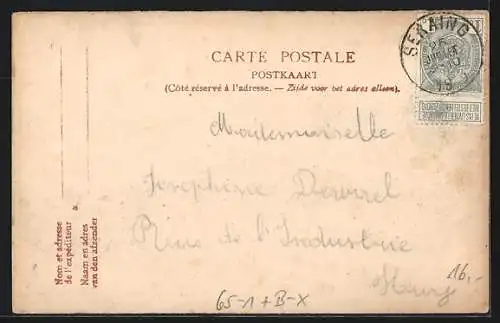 CARTE POSTALE
POSTKAART
(Côté réservé à l'adresse. — Zijde voor het adres alleen).
SERAING
Mademoiselle
Josephine
Rue de l'Industrie
16,-
65-1+B-X
Nom et adresse
de l'expéditeur
Naam en adres
van den afzender